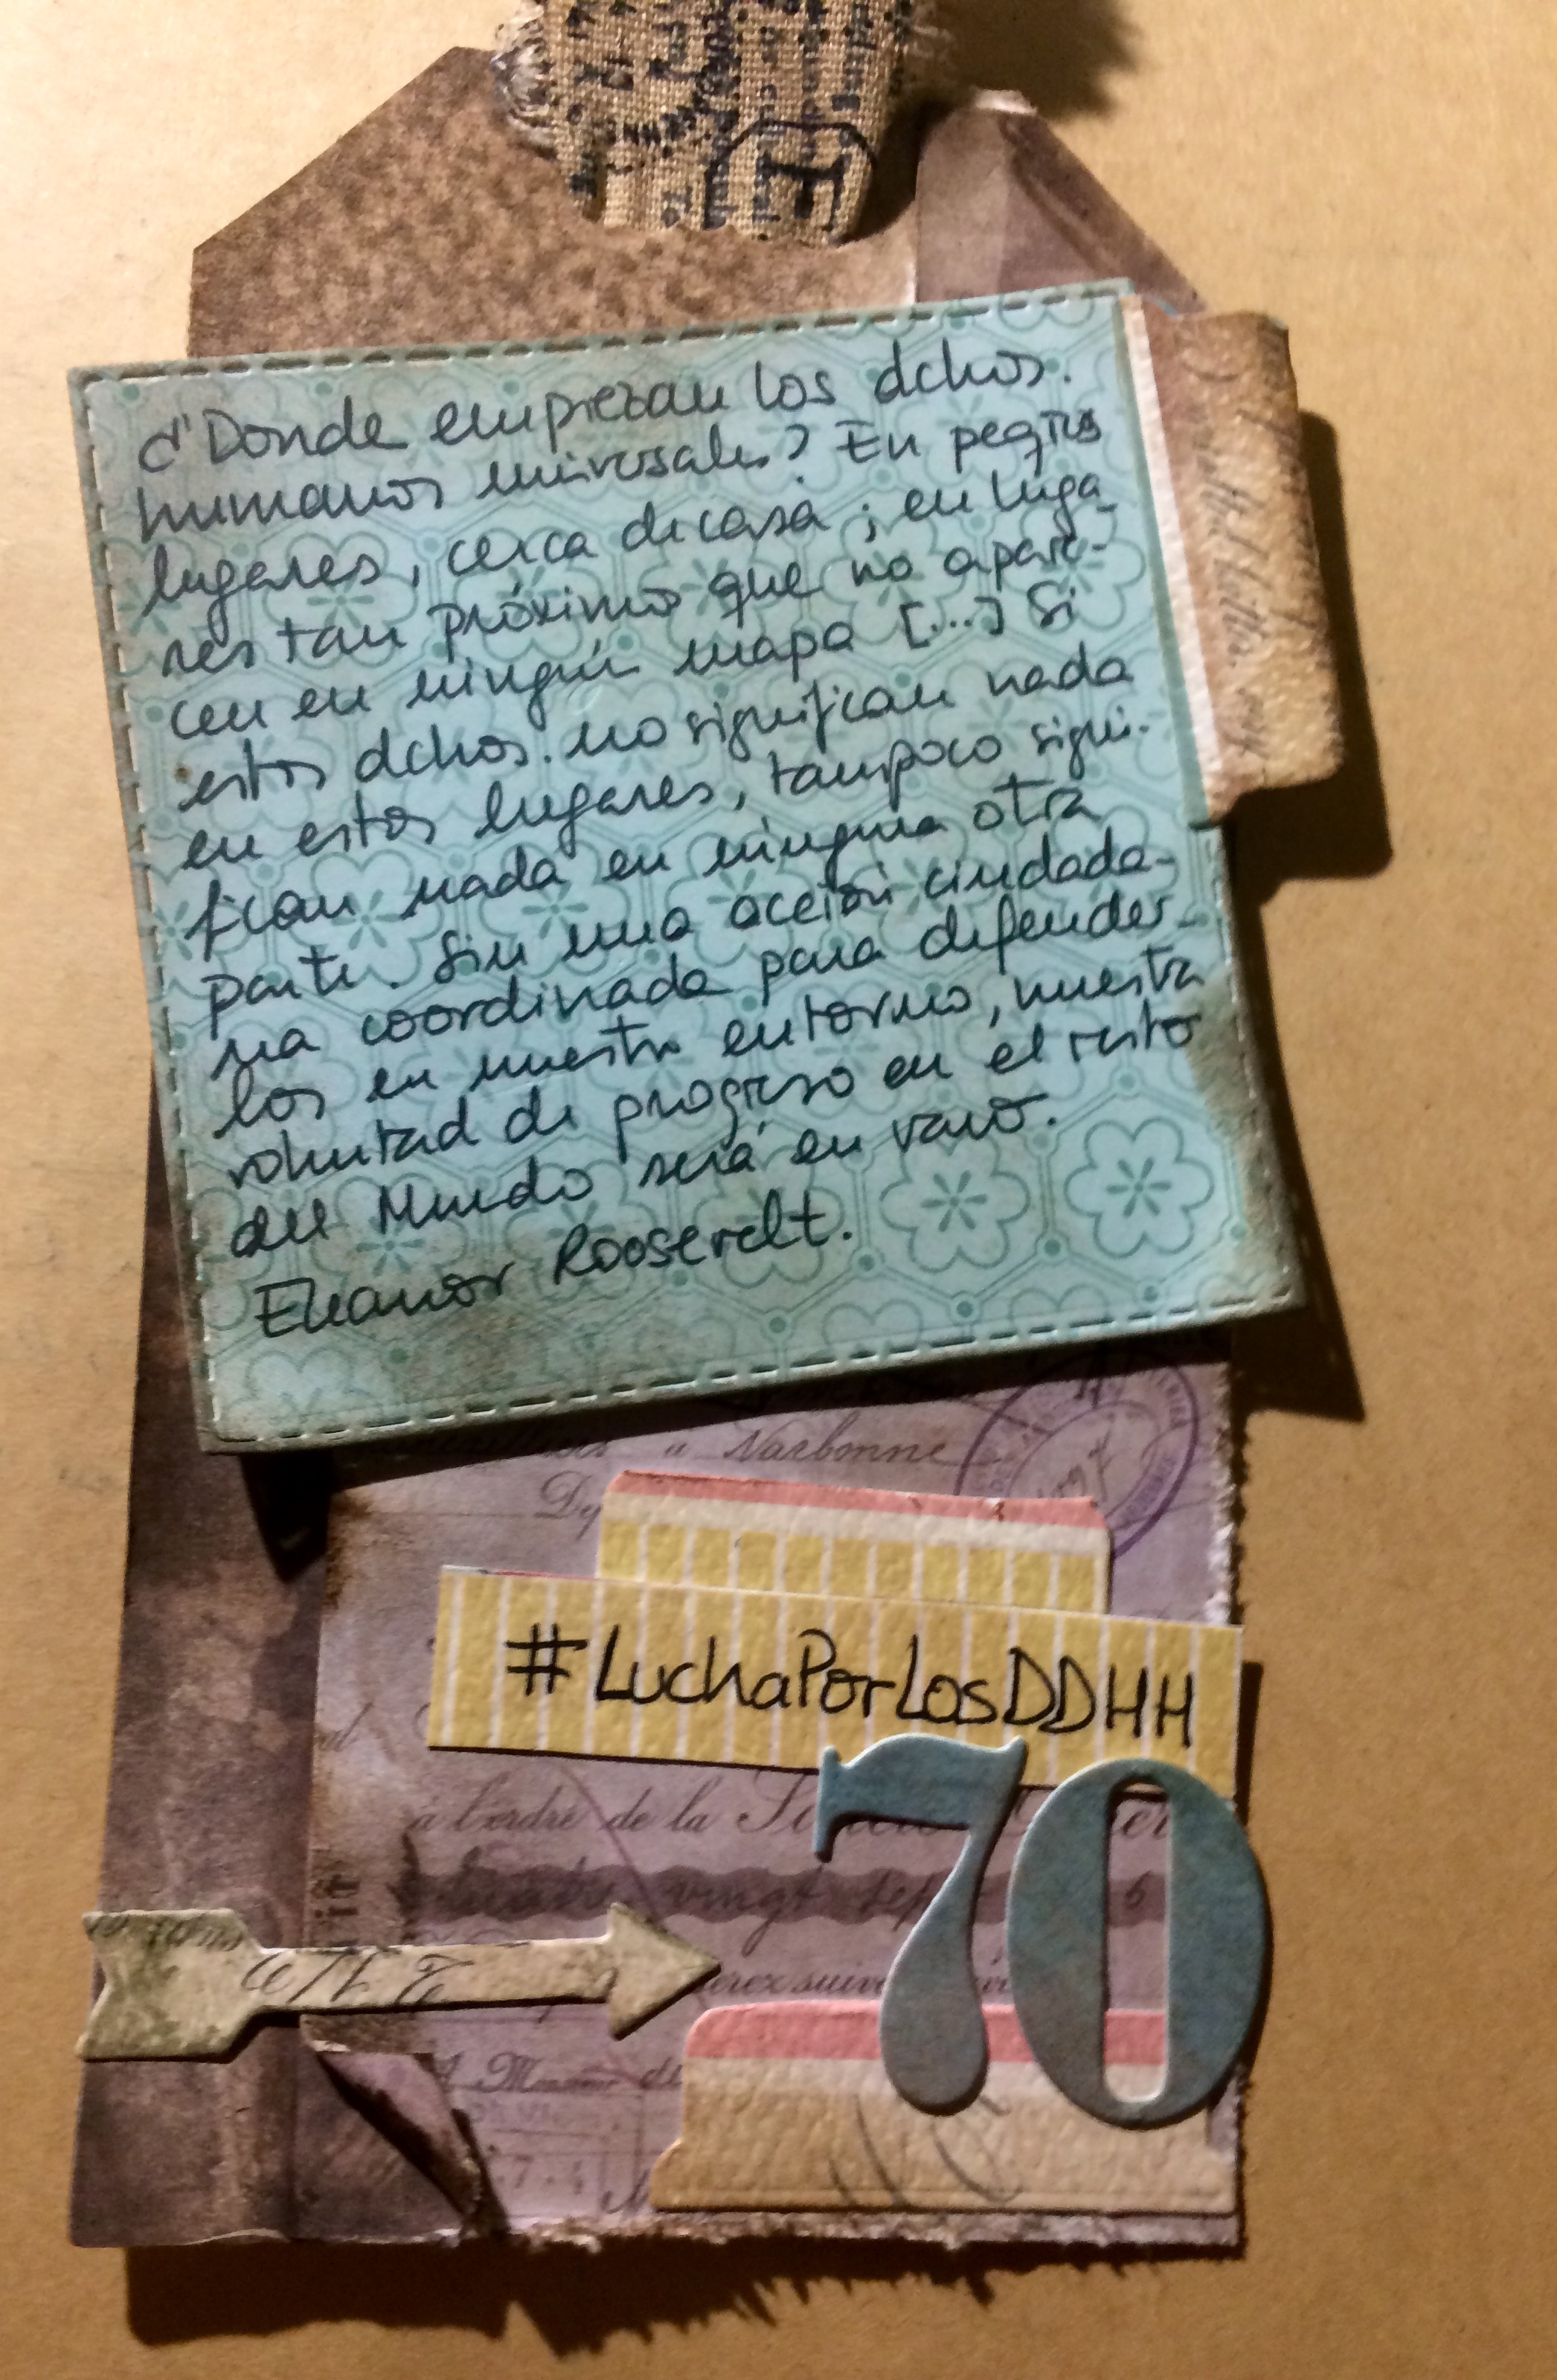 ¿Donde empiezan los dchos.
humanos universales? En peqños
lugares, cerca de casa; en luga-
res tan próximos que no apare-
cen en ningún mapa [...] Si
estos dchos. no significan nada
en estos lugares, tampoco signi-
fican nada en ninguna otra
parte. Sin una acción ciudada-
na coordinada para defender-
los en nuestro entorno, nuestra
voluntad de progreso en el resto
del Mundo será en vano.
Eleanor Roosevelt.
à Narbonne
#LuchaPorLosDDHH
70
à l'ordre de la
vingt sept